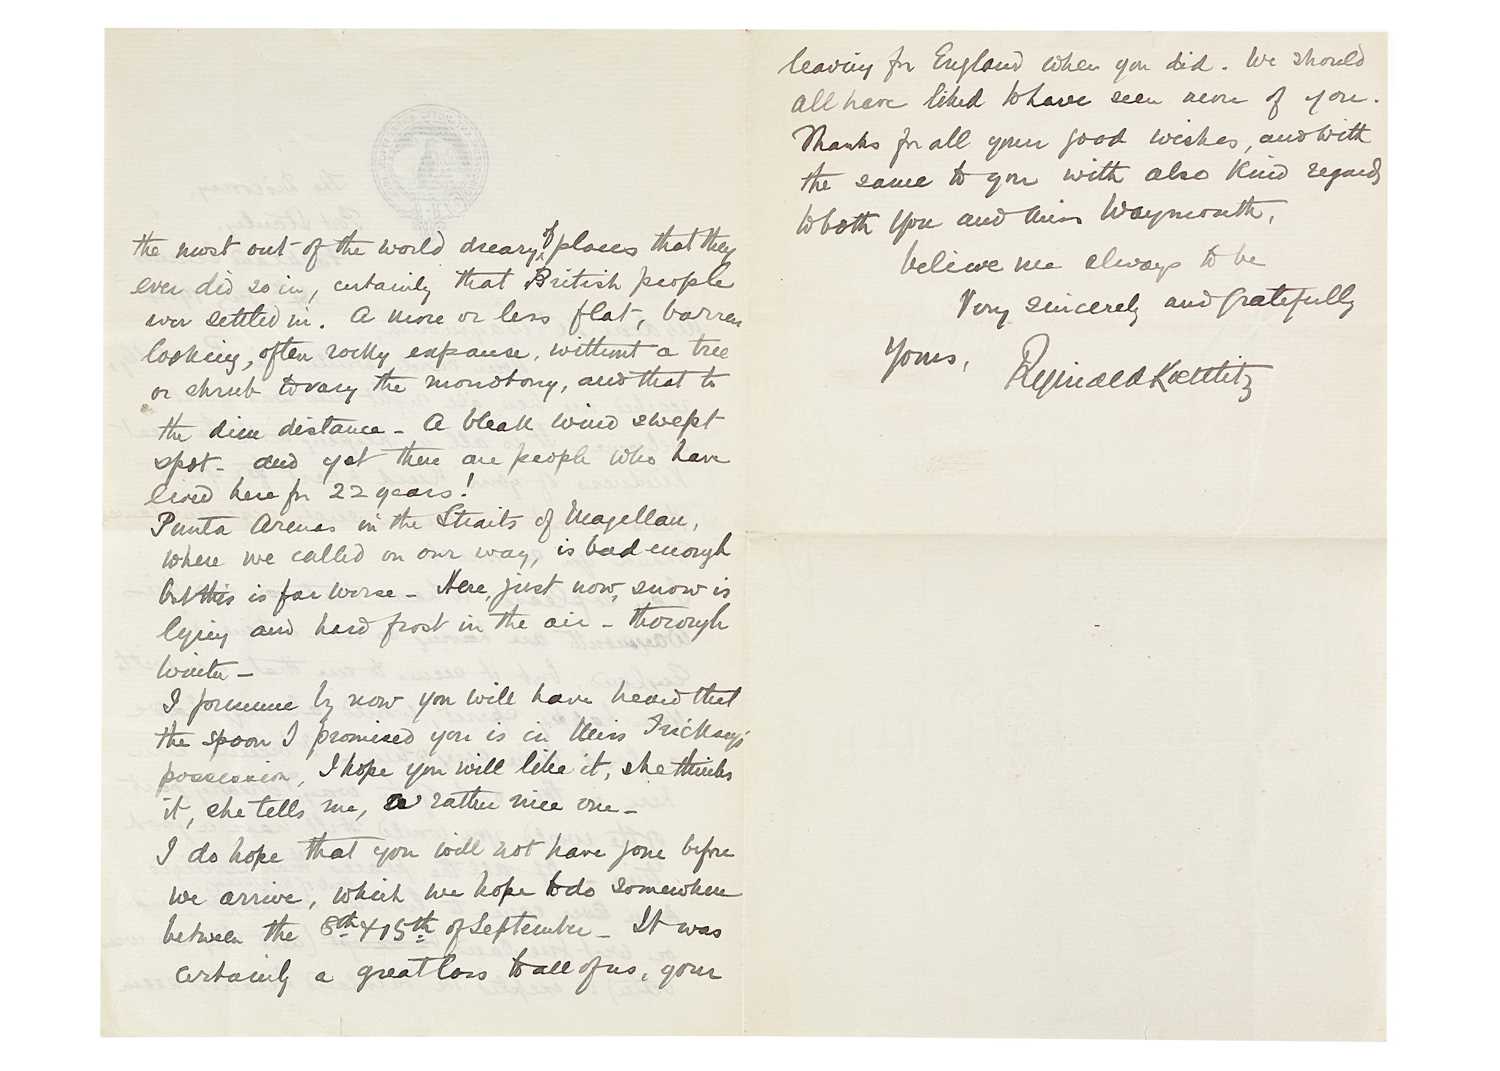 the most out of the world dreary of places that they
ever did so in, certainly that British people
ever settled in. A more or less flat, barren
looking, often rocky expanse, without a tree
or shrub to vary the monotony, and that to
the dim distance - A bleak wind swept
spot - and yet there are people who have
lived here for 22 years!
Punta Arenas in the Straits of Magellan,
where we called on our way, is bad enough
but this is far worse - Here, just now, snow is
lying and hard frost in the air - thorough
winter -
I presume by now you will have heard that
the spoon I promised you is in Miss
possession, I hope you will like it, she thinks
it, she tells me, a rather nice one -
I do hope that you will not have gone before
we arrive, which we hope to do somewhere
between the 8th & 15th of September - It was
certainly a great loss to all of us, your
leaving for England when you did. We should
all have liked to have seen more of you.
Thanks for all your good wishes, and with
the same to you with also kind regards
to both you and Miss Waymouth,
believe me always to be
Very sincerely and gratefully
Yours, Reginald Koettlitz